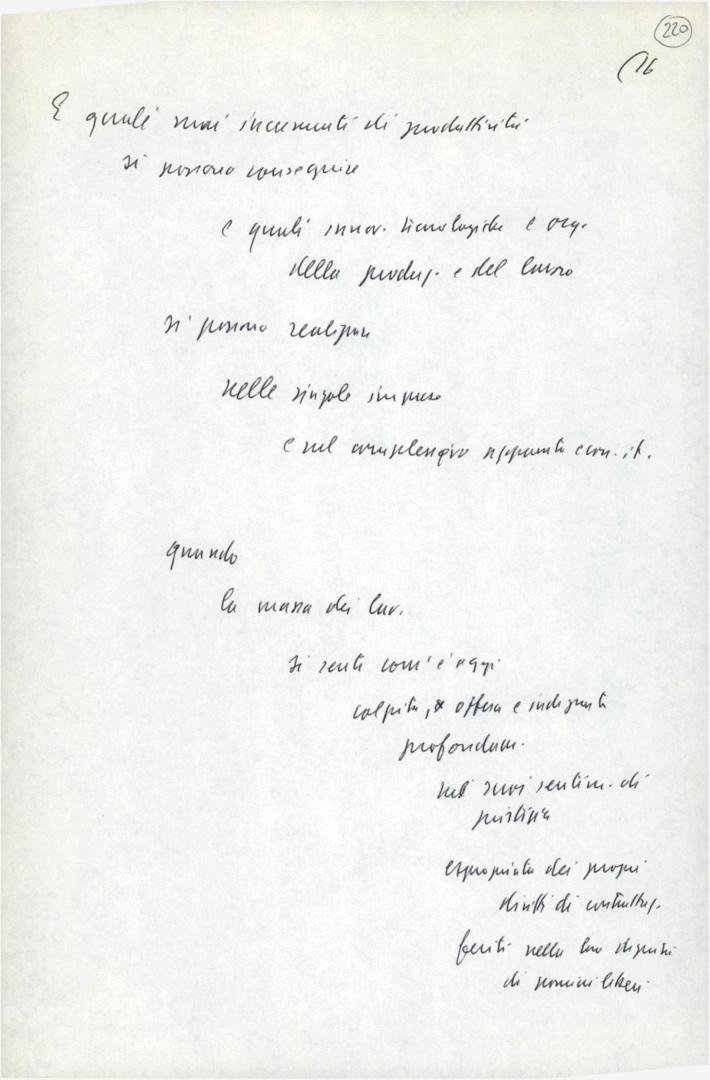 220
16
E quali mai incrementi di produttività
si possono conseguire
e quali innov. tecnologiche e org.
della produz. e del lavoro
si possono realizzare
nelle singole imprese
e nel complessivo apparato econ. it.
quando
la massa dei lav.
si sente com'è oggi
colpita, offesa e indignata
profondam.
nei suoi sentim. di
giustizia
espropriata dei propri
diritti di contrattaz.
feriti nella loro dignità
di uomini liberi